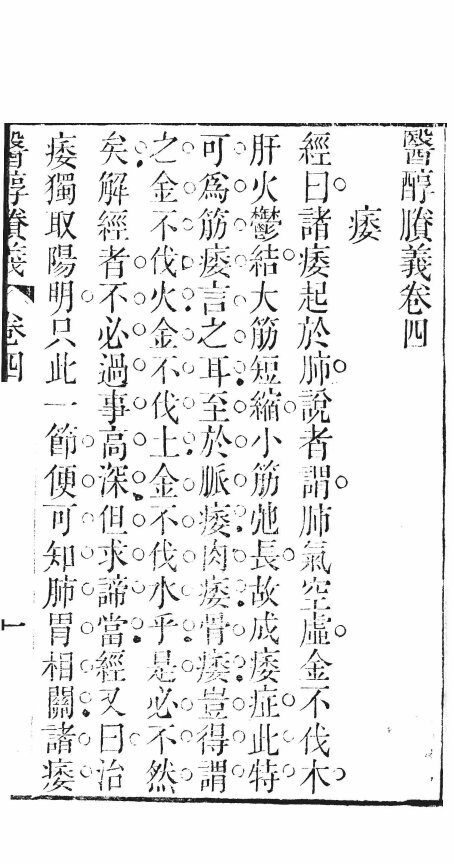 醫醇賸義卷四
痿
經曰諸痿起於肺說者謂肺氣空虛金不伐木
肝火鬱結大筋短縮小筋弛長故成痿症此特
可為筋痿言之耳至於脈痿肉痿骨痿豈得謂
之金不伐火金不伐土金不伐水乎是必不然
矣解經者不必過事高深但求諦當經又曰治
痿獨取陽明只此一節便可知肺胃相關諸痿
醫醇賸義 卷四